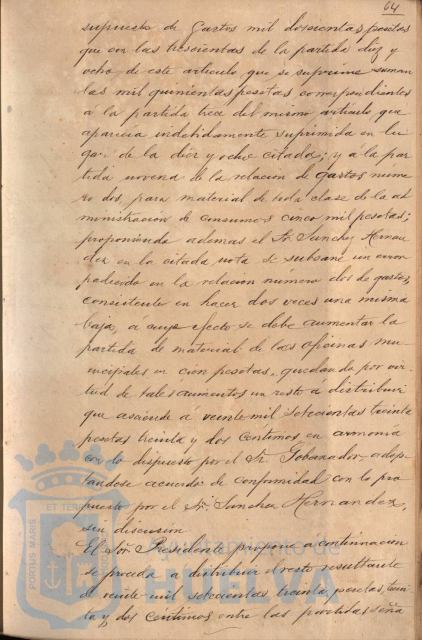 64
supuesto de Gastos mil doscientas pesetas
que con las trescientas de la partida diez y
ocho de este articulo que se suprime suman
las mil quinientas pesetas correspondientes
á la partida trece del mismo articulo que
aparecia indebidamente suprimida en lu
gar de la diez y ocho citada; y á la par
tida novena de la relacion de gastos nume
ro dos, para material de toda clase de la ad
ministracion de consumos cinco mil pesetas;
proponiendo ademas el Sr. Sanchez Hernan
dez en la citada nota se subsane un error
padecido en la relacion número dos de gastos,
consistente en hacer dos veces una misma
baja, á cuyo efecto se debe aumentar la
partida de material de las oficinas mu
nicipales en cien pesetas, quedando por vir
tud de tales aumentos un resto á distribuir
que asciende á veinte mil setecientas treinta
pesetas treinta y dos centimos en armonia
con lo dispuesto por el Sr. Gobernador, adop
tandose acuerdo de conformidad con lo pro
puesto por el Sr. Sanchez Hernandez,
sin discusion
El Sor. Presidente propone a continuacion
se proceda a distribuir el resto resultante
de veinte mil setecientas treinta pesetas, trein
ta y dos centimos entre las partidas seña
PORTUS MARIS
ET TERRAE
Ayuntamiento de
HUELVA